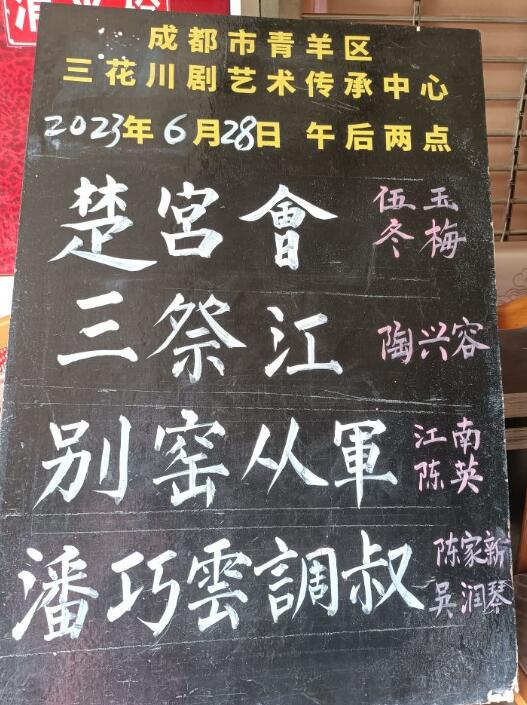 成都市青羊区
三花川剧艺术传承中心
2023年6月28日 午后两点
楚宫會 伍玉
冬梅
三祭江 陶兴容
别窑从軍 江南
陈英
潘巧雲調叔 陈家新
吴润琴